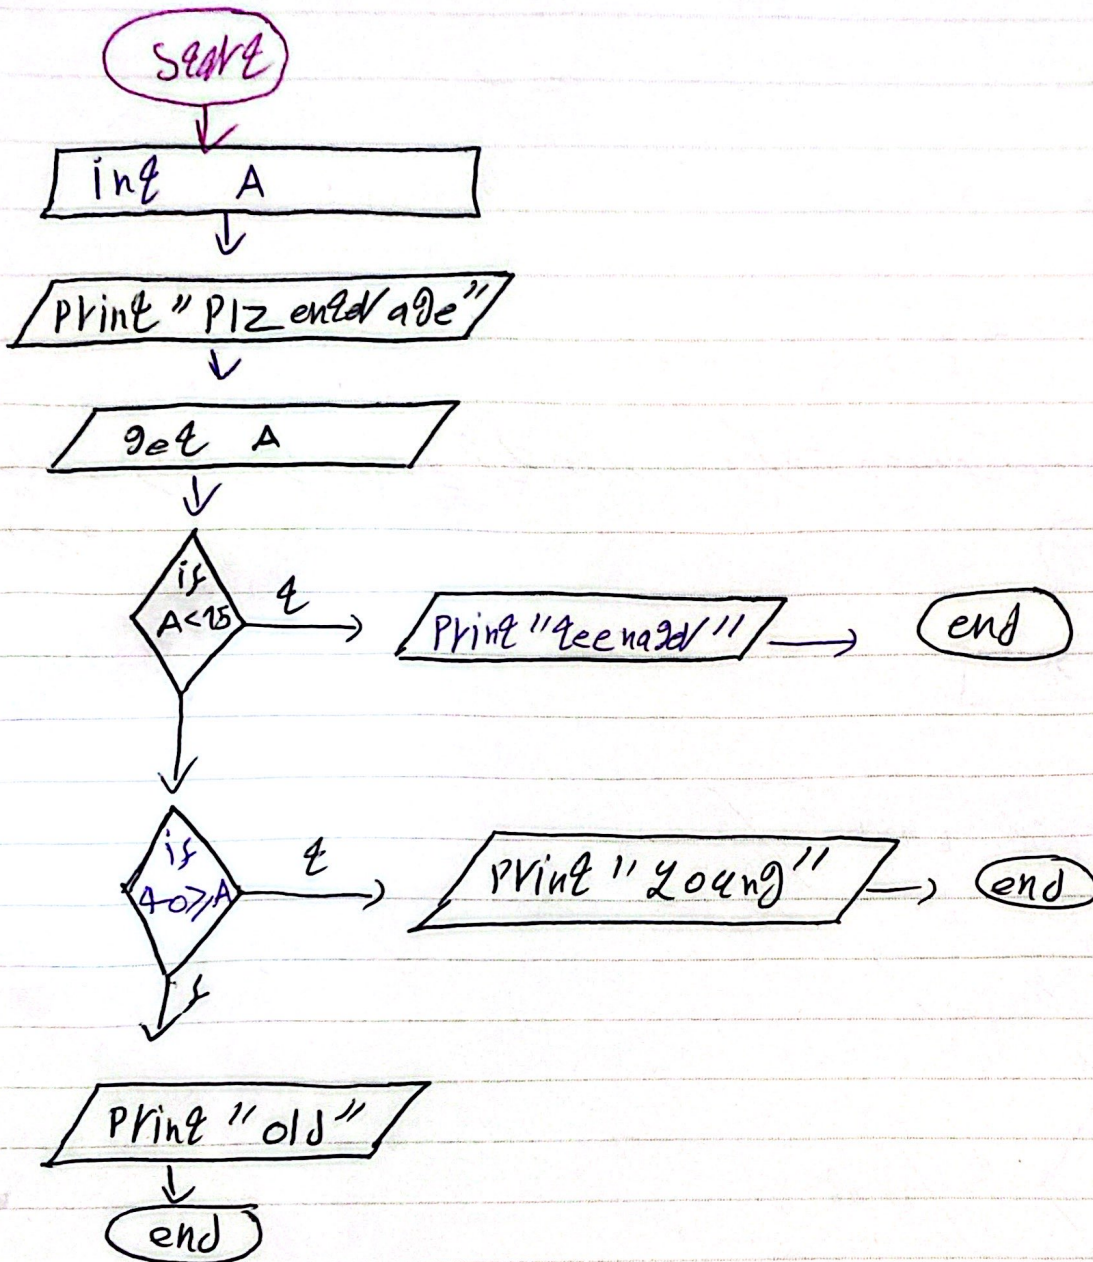 start
int A
print "Plz enter age"
get A
if
A<25
t
print "teenager"
end
if
40≥A
t
print "young"
end
f
print "old"
end